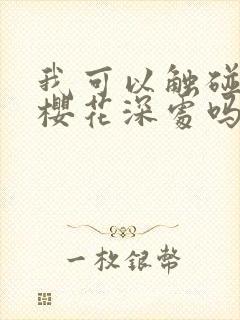 我可以触碰
樱花深处吗
一枚银币